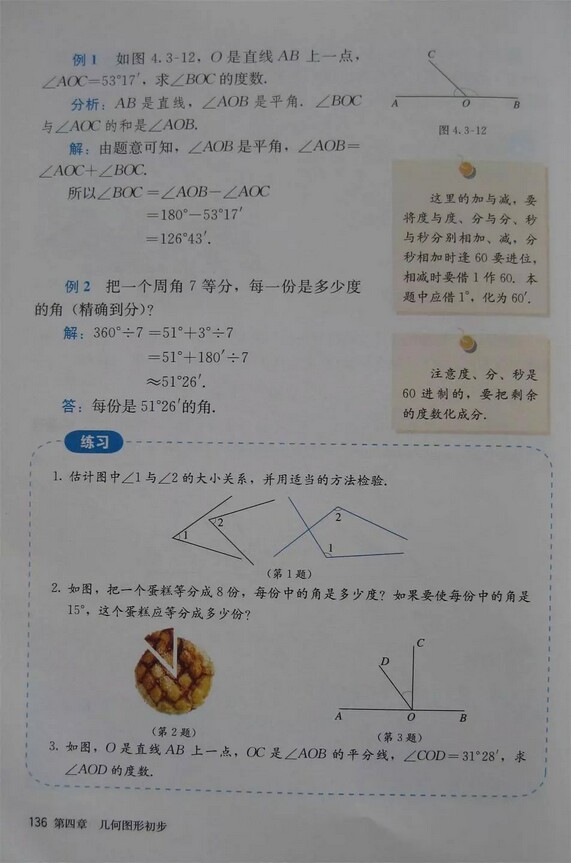 例1 如图 4.3-12，O 是直线 AB 上一点，
∠AOC=53°17′，求∠BOC 的度数.
分析：AB 是直线，∠AOB 是平角. ∠BOC
与∠AOC 的和是∠AOB.
解：由题意可知，∠AOB 是平角，∠AOB=
∠AOC+∠BOC.
所以∠BOC =∠AOB-∠AOC
=180°-53°17′
=126°43′.
C
A
O
B
图 4.3-12
这里的加与减，要
将度与度、分与分、秒
与秒分别相加、减，分
秒相加时逢 60 要进位，
相减时要借 1 作 60. 本
题中应借 1°，化为 60′.
例2 把一个周角 7 等分，每一份是多少度
的角（精确到分）？
解：360°÷7 =51°+3°÷7
=51°+180′÷7
≈51°26′.
答：每份是 51°26′的角.
注意度、分、秒是
60 进制的，要把剩余
的度数化成分.
练习
1. 估计图中∠1 与∠2 的大小关系，并用适当的方法检验.
1
2
1
2
（第 1 题）
2. 如图，把一个蛋糕等分成 8 份，每份中的角是多少度？如果要使每份中的角是
15°，这个蛋糕应等分成多少份？
（第 2 题）
C
D
A
O
B
（第 3 题）
3. 如图，O 是直线 AB 上一点，OC 是∠AOB 的平分线，∠COD=31°28′，求
∠AOD 的度数.
136 第四章 几何图形初步